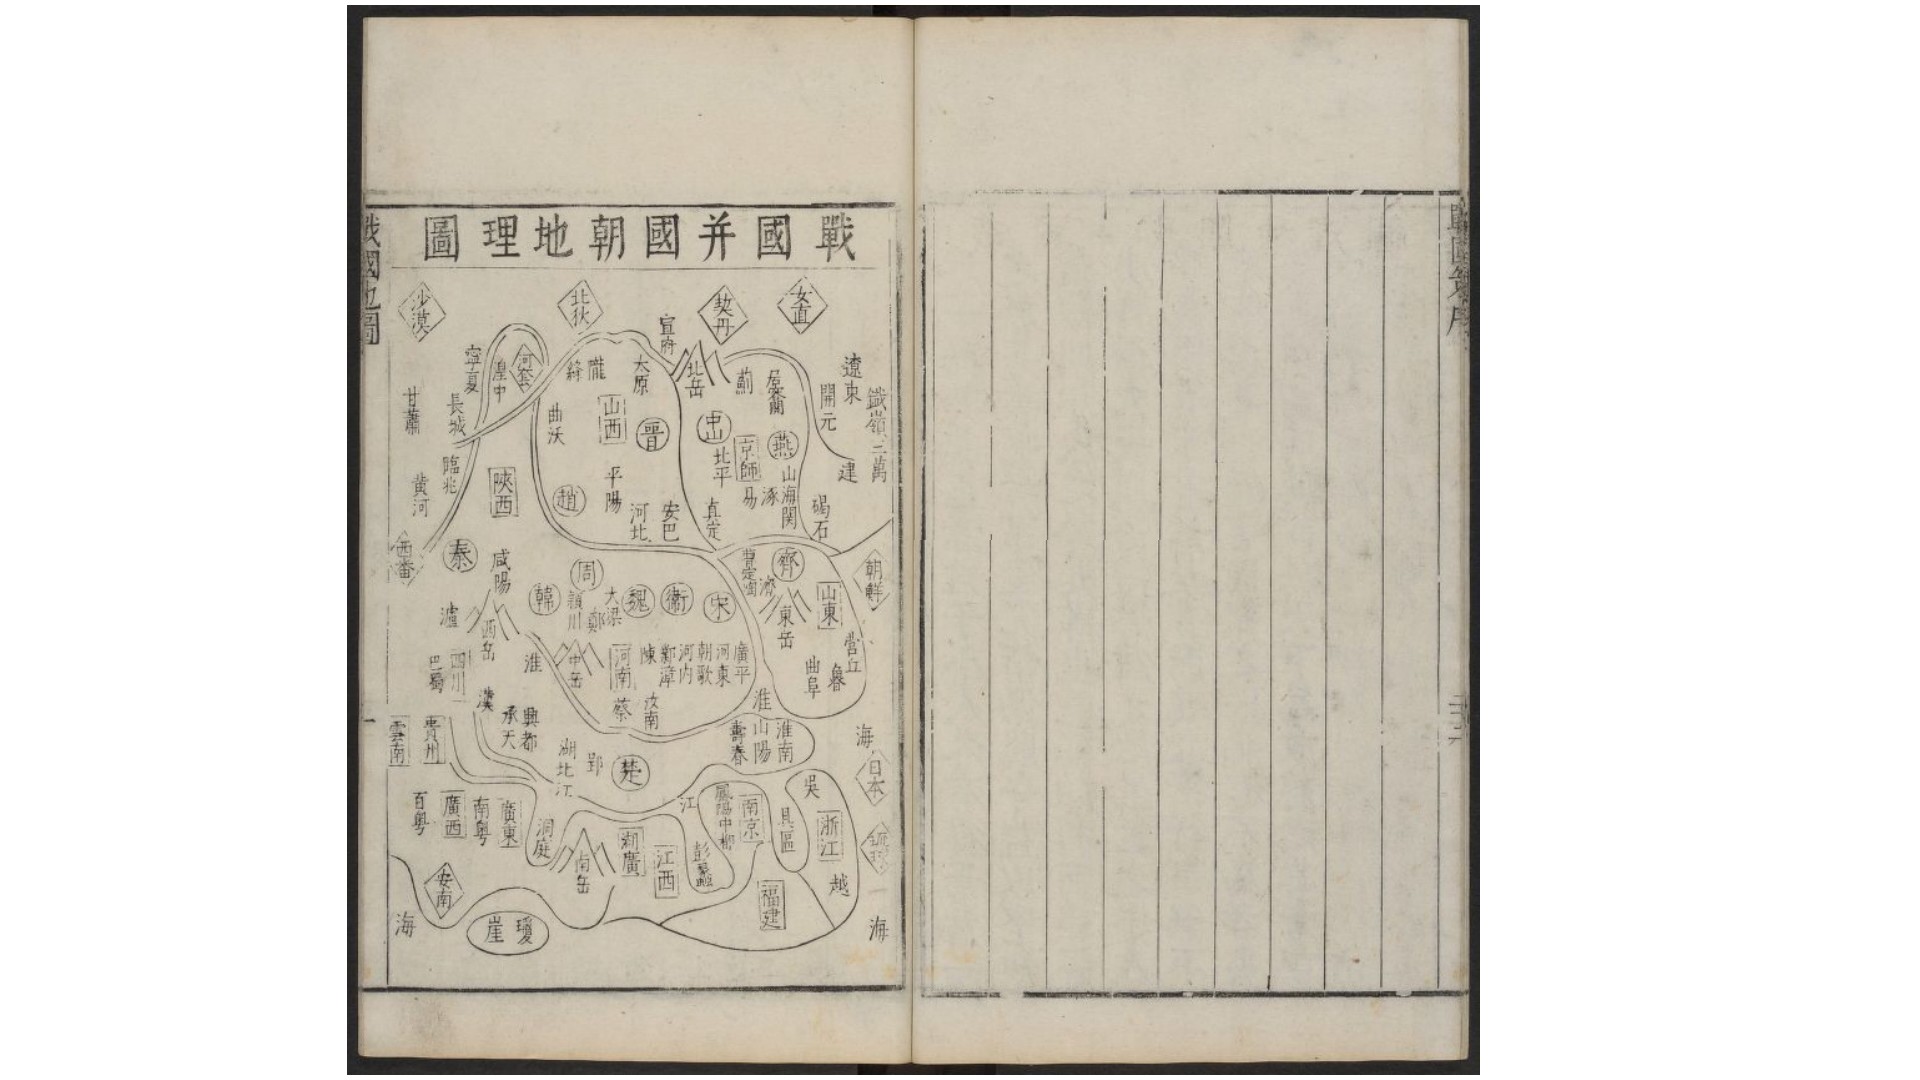 戰國并國朝地理圖
女直
契丹
北狄
沙漠
宣府
遼東
鐵嶺三萬
開元
建
北岳
薊
太原
隴
絳
河套
湟中
寧夏
長城
甘肅
燕
中山
京師
北平
易
涿
山海関
碣石
真定
晉
山西
曲沃
平陽
趙
河北
安巴
陝西
臨兆
黄河
西番
秦
咸陽
朝鮮
齊
山東
濟
曹定陶
東岳
營丘
曲阜
宋
衛
魏
大梁
鄭
周
潁川
韓
西岳
瀘
四川
巴蜀
漢
淮
中岳
河南
陳
鄴漳
河内
朝歌
河東
廣平
汝南
蔡
淮
淮南
山陽
壽春
海
日本
琉球
興都
承天
湖北
江
郢
楚
江
貴州
雲南
吳
浙江
越
具區
南京
鳳陽中都
彭蠡
江西
湖廣
南岳
洞庭
廣東
南粤
廣西
百粤
福建
安南
瓊崖
海
海
戰國地圖
一
戰國策序